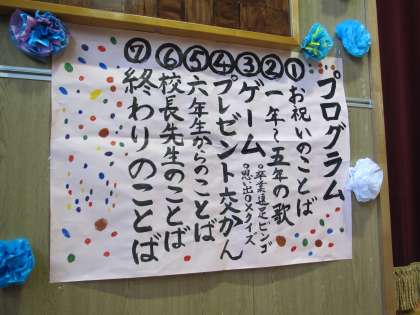 プログラム
①お祝いのことば
②一年~五年の歌
③ゲーム
○卒業遠足ビンゴ
○思い出○×クイズ
④プレゼント交かん
⑤六年生からのことば
⑥校長先生のことば
⑦終わりのことば